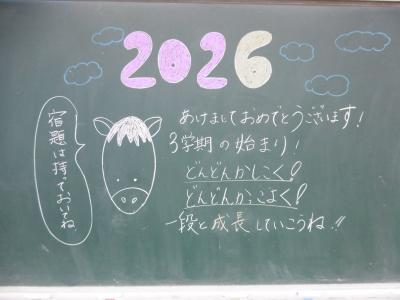 2026
あけましておめでとうございます！
3学期の始まり！
どんどんかしこく！
どんどんかっこよく！
一段と成長していこうね！！
宿題は持っておいてね